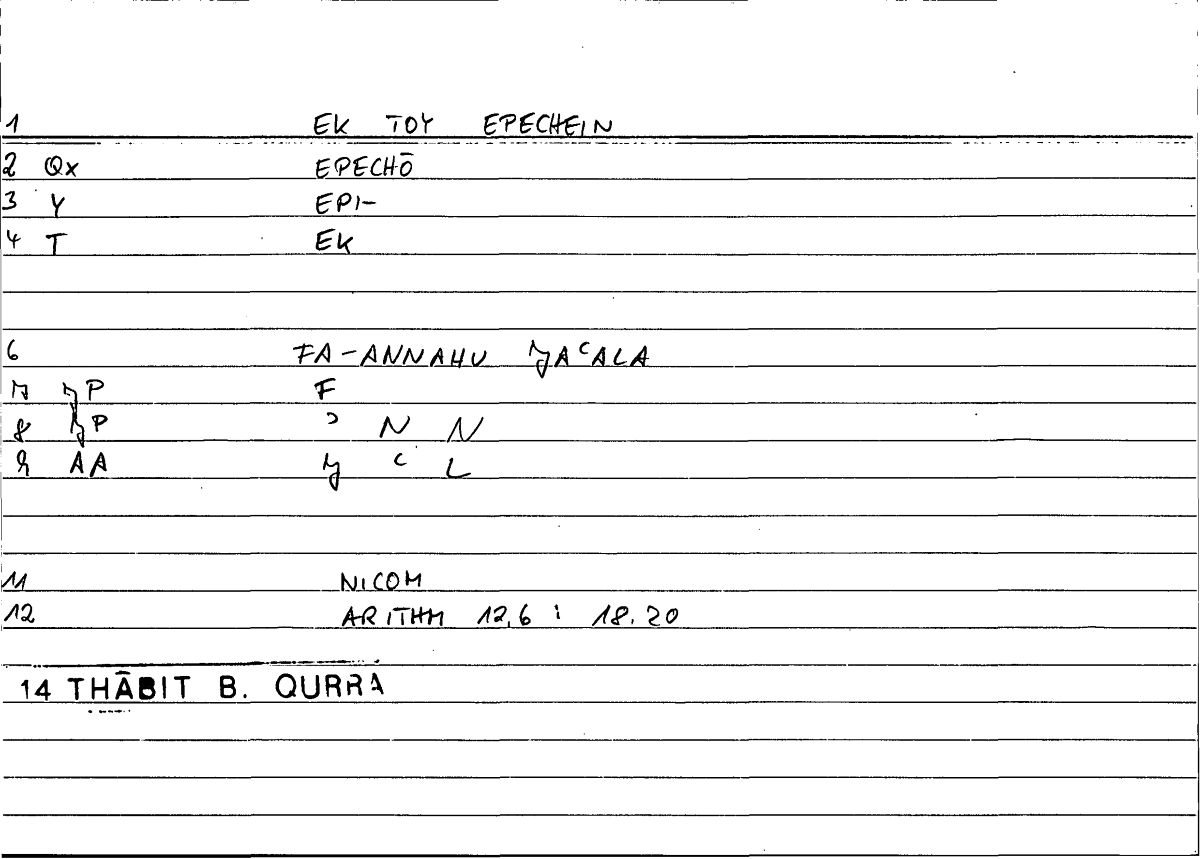 1 EK TOY EPECHEIN
2 Qx EPECHŌ
3 Y EPI-
4 T EK
6 FA-ANNAHU JAʿALA
7 JP F
8 JP ʾ N N
9 AA J ʿ L
11 NICOM
12 ARITHM 12,6 : 18.20
14 THĀBIT B. QURRA